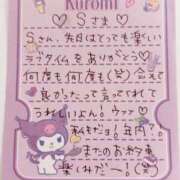 Kuromi
♡Sさま♡
Sさん、先日はとっても楽しい
ラブタイムをありがとう♡
何度も何度も(笑)会えて
良かったって言ってくれて
うれしいよん! ウフッ♡
私もだよ! 年内?。
またのお約束
楽しみだー!(笑)